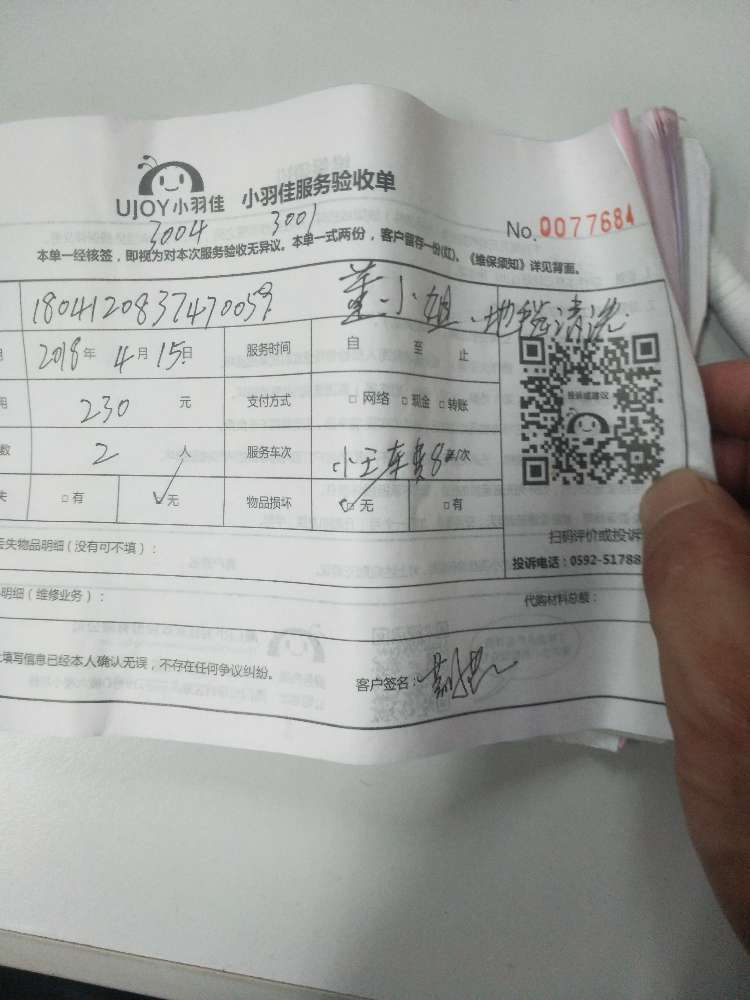 UJOY小羽佳 小羽佳服务验收单
No. 0077684
3004 3001
本单一经核签，即视为对本次服务验收无异议。本单一式两份，客户留存一份(红)、《维保须知》详见背面。
1804120837470059 董小姐、地毯清洗
2018年4月15日 服务时间 自 至 止
230 元 支付方式 □ 网络 □ 现金 □ 转账
投诉或建议
数 2 人 服务车次 小王车费8 /次
失 □ 有 无 物品损坏 □ 无 □ 有
扫码评价或投诉
丢失物品明细（没有可不填）：
投诉电话：0592-51788
明细（维修业务）： 代购材料总额：
填写信息已经本人确认无误，不存在任何争议纠纷。
客户签名：